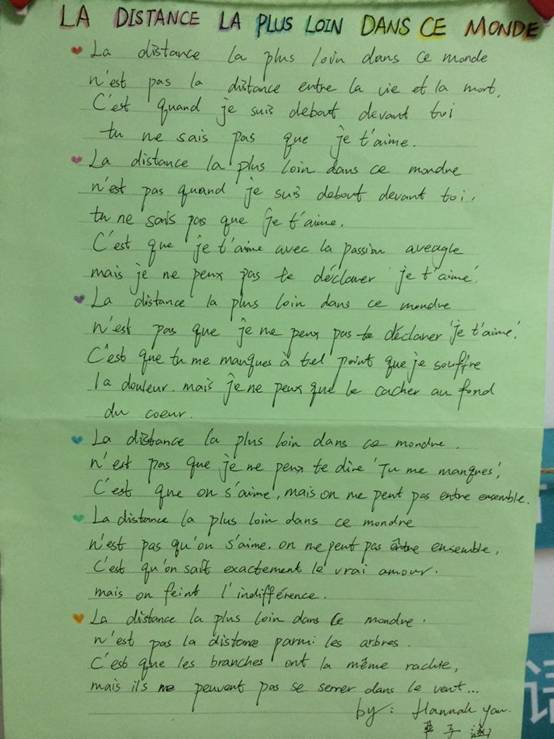 LA DISTANCE LA PLUS LOIN DANS CE MONDE
La distance la plus loin dans ce monde
n'est pas la distance entre la vie et la mort.
C'est quand je suis debout devant toi
tu ne sais pas que je t'aime.
La distance la plus loin dans ce mondre
n'est pas quand je suis debout devant toi,
tu ne sais pas que je t'aime.
C'est que je t'aime avec la passion aveugle
mais je ne peux pas te déclarer 'je t'aime'.
La distance la plus loin dans ce mondre
n'est pas que je ne peux pas te déclarer 'je t'aime'.
C'est que tu me manques à tel point que je souffre
la douleur. mais je ne peux que le cacher au fond
du coeur.
La distance la plus loin dans ce mondre.
n'est pas que je ne peux te dire 'Tu me manques',
C'est que on s'aime, mais on ne peut pas entre ensemble.
La distance la plus loin dans ce mondre
n'est pas qu'on s'aime. on ne peut pas être ensemble,
C'est qu'on sait exactement le vrai amour.
mais on feint l'indifférence.
La distance la plus loin dans ce mondre.
n'est pas la distane parmi les arbres.
C'est que les branches ont la même rachte,
mais ils ne peuvent pas se serrer dans le vent...
by: Hannah Yan
子涵
话